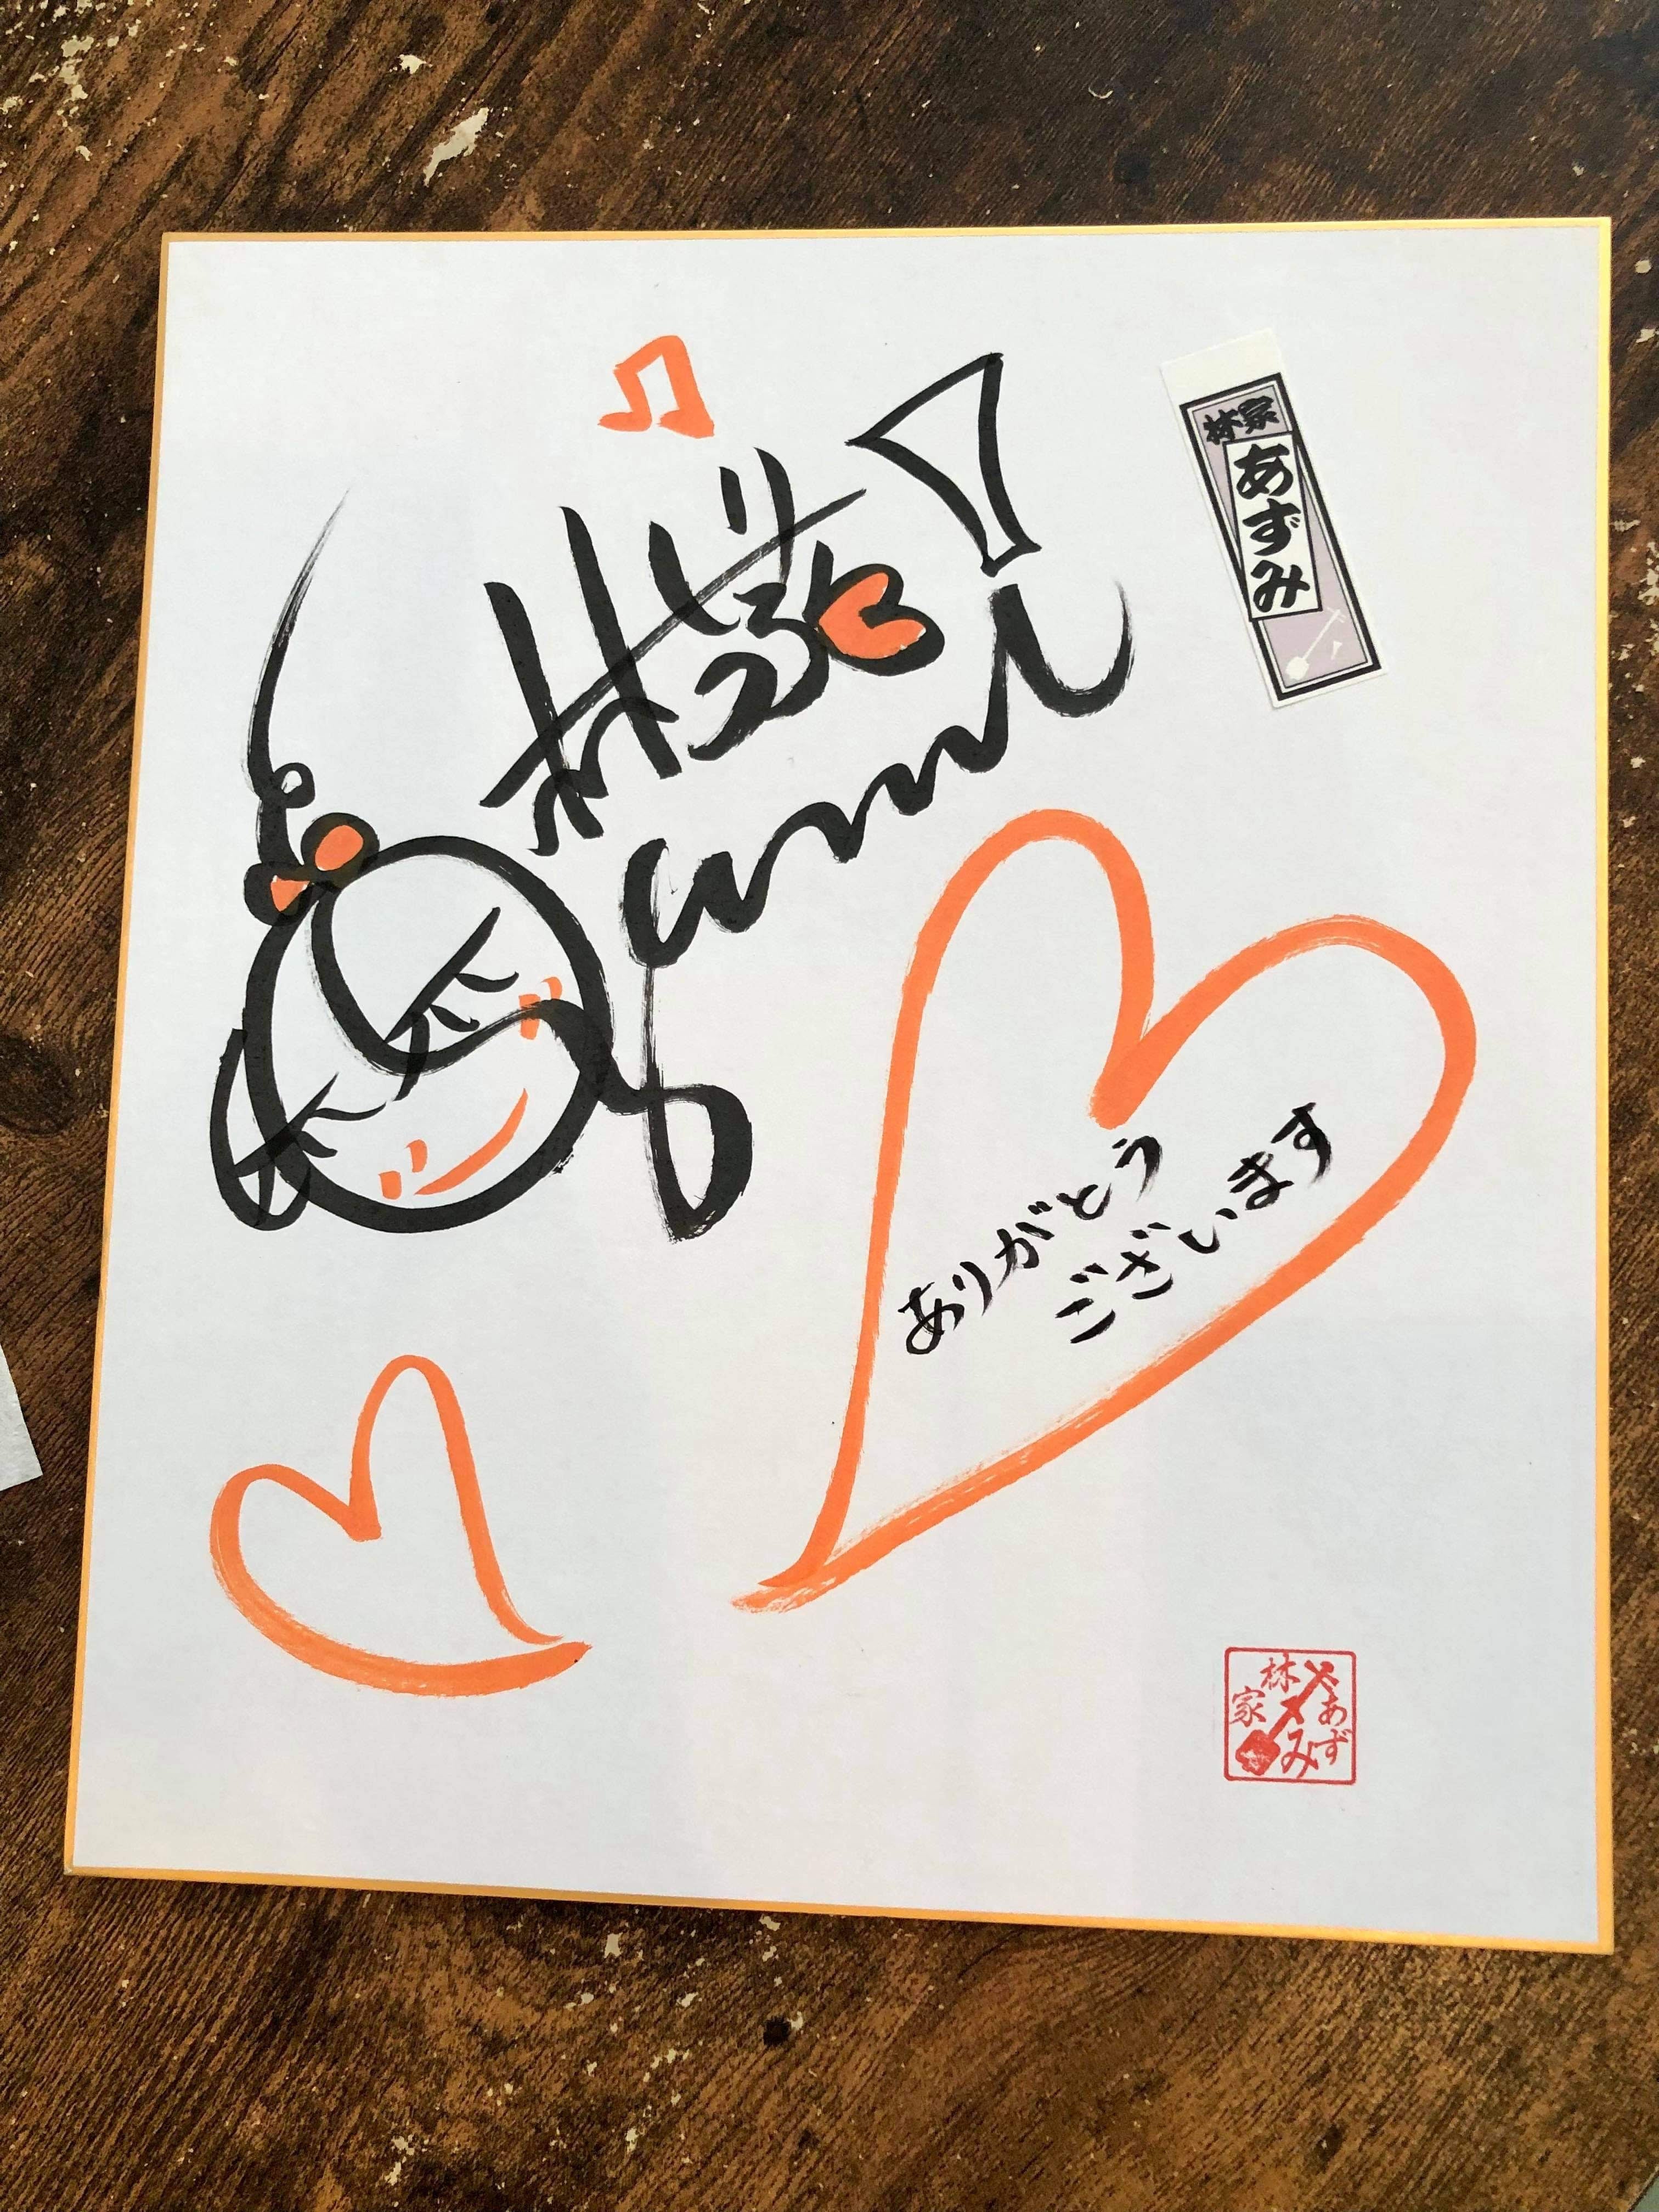 林家
あずみ
林家
ありがとう
ございます
林家
あずみ